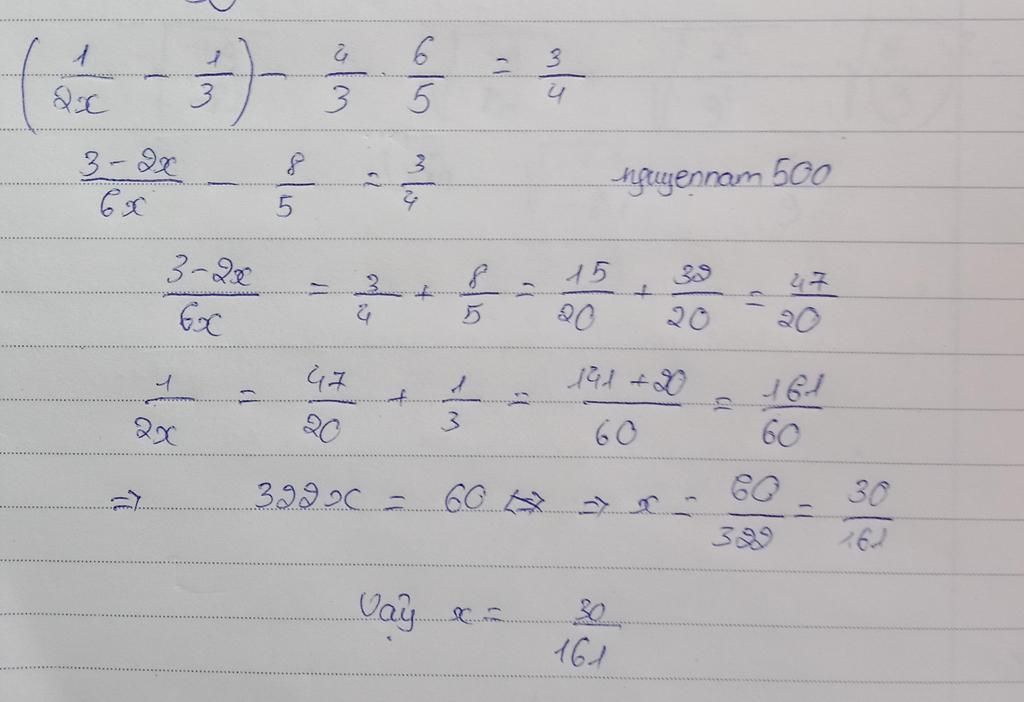 (1/2x - 1/3) - 4/3 . 6/5 = 3/4
3-2x/6x - 8/5 = 3/4 nguyennam 500
3-2x/6x = 3/4 + 8/5 = 15/20 + 32/20 = 47/20
1/2x = 47/20 + 1/3 = 141+20/60 = 161/60
⇒ 322x = 60 ⇒ x = 60/322 = 30/161
Vậy x = 30/161